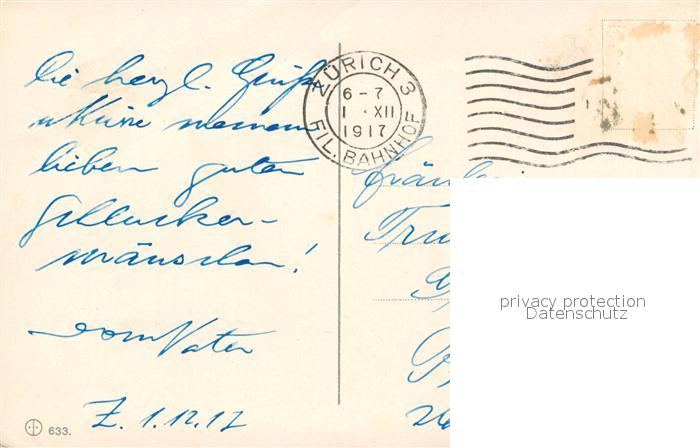 die herzl. Grüße
u Küsse meinem
lieben guten
mäuschen!
vom Vater
Z. 1.12.17
633.
ZÜRICH 3
6-7
1 · XII
1917
FIL. BAHNHOF
Fräulein
privacy protection
Datenschutz